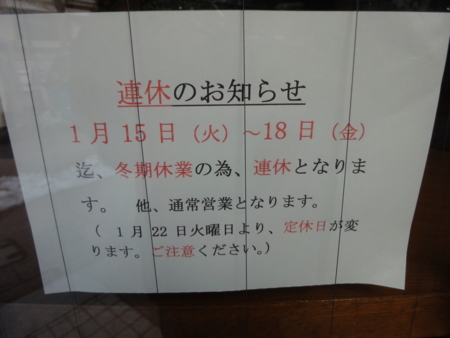 連休のお知らせ
1月15日（火）～18日（金）
迄、冬期休業の為、連休となりま
す。　他、通常営業となります。
（　1月22日火曜日より、定休日が変
ります。ご注意ください。）